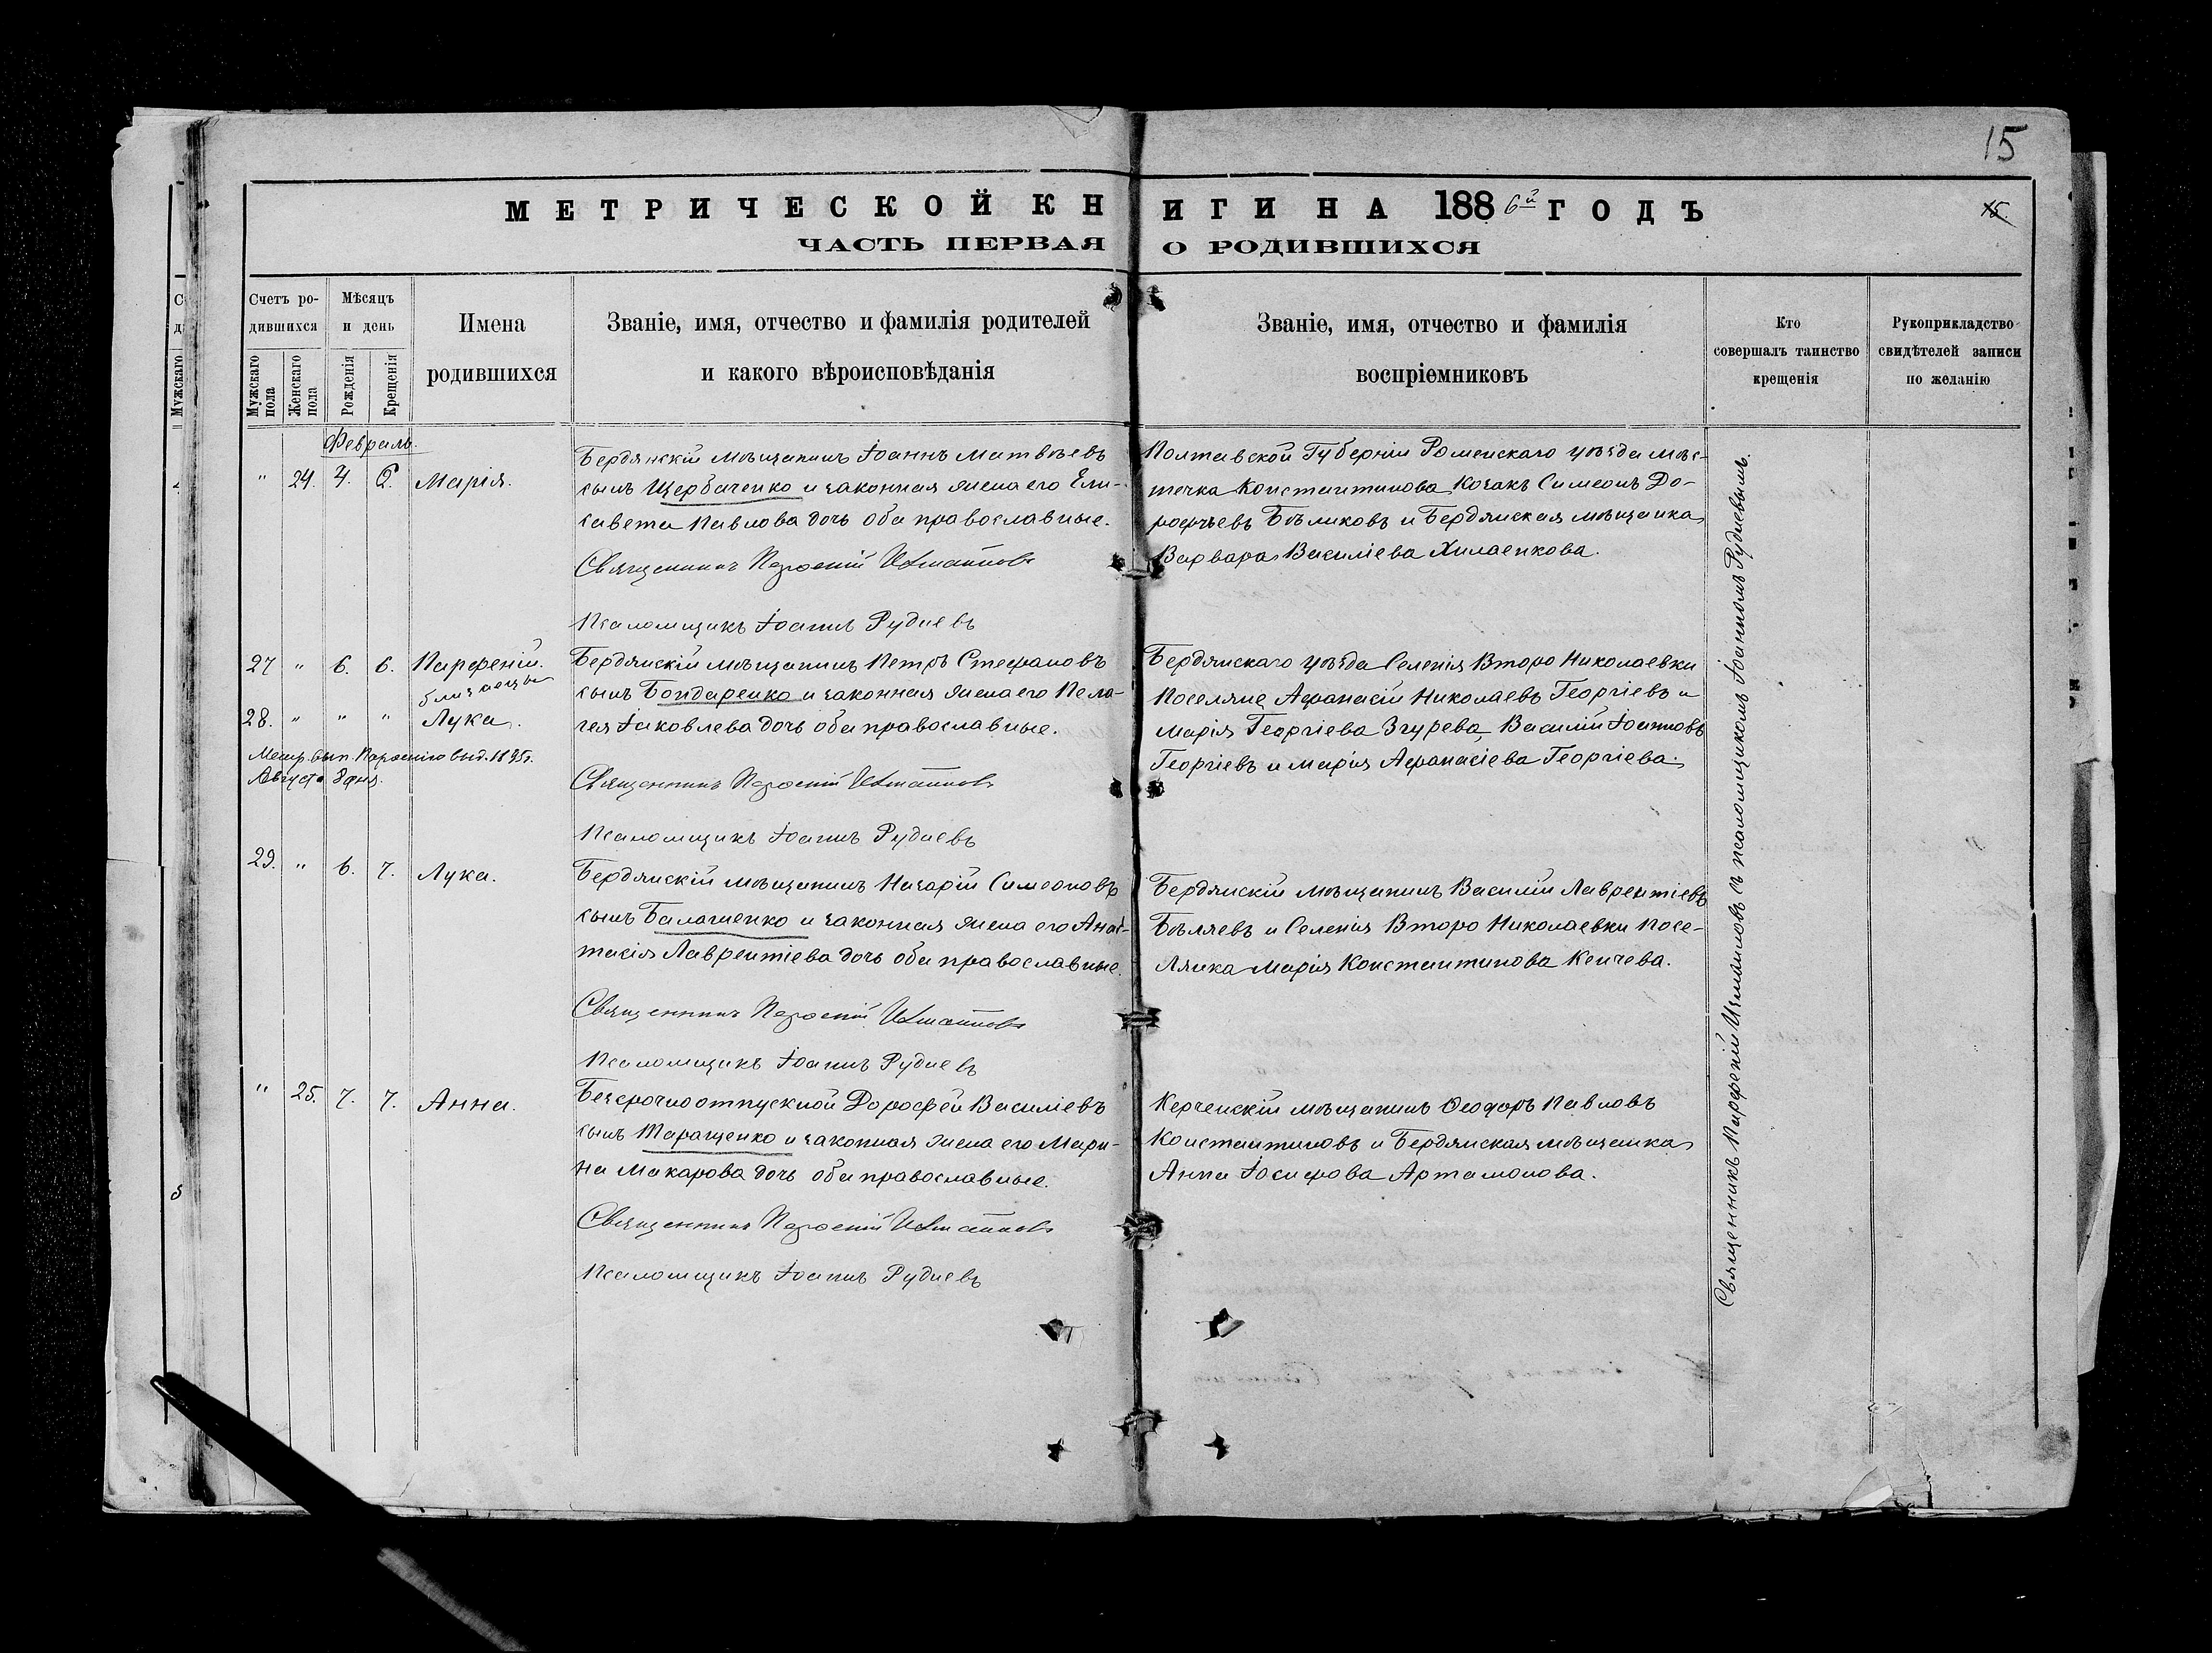 15
МЕТРИЧЕСКОЙ КНИГИ НА 1886й ГОДЪ
15.
ЧАСТЬ ПЕРВАЯ О РОДИВШИХСЯ
Счетъ ро-
дившихся
Мужскаго
пола
Женскаго
пола
Мѣсяцъ
и день
Рожденія
Крещенія
Имена
родившихся
Званіе, имя, отчество и фамилія родителей
и какого вѣроисповѣданія
Званіе, имя, отчество и фамилія
воспріемниковъ
Кто
совершалъ таинство
крещенія
Рукоприкладство
свидѣтелей записи
по желанію
Февраль.
" 24. 4. 6. Марія.
Бердянскій мѣщанинъ Іоаннъ Матвѣевъ
сынъ Щербаченко и законная жена его Ели-
савета Павлова дочь оба православные.
Священникъ Парфеній Измаиловъ
Псаломщикъ Іоаннъ Рудневъ
Полтавской Губерніи Роменскаго уѣзда мѣс-
течка Константинова Козакъ Симеонъ До-
рофѣевъ Бѣликовъ и Бердянская мѣщанка
Варвара Василіева Хилаенкова.
27 " 6. 6. Парфеній.
близнецы
28. " " " Лука.
Метр. вып. Парфенію выд. 1895г.
Августа 3 дня.
Бердянскій мѣщанинъ Петръ Стефановъ
сынъ Бондаренко и законная жена его Пела-
гея Іаковлева дочь оба православные.
Священникъ Парфеній Измаиловъ
Псаломщикъ Іоаннъ Рудневъ
Бердянскаго уѣзда Селенія Второ Николаевки
Поселяне Афанасій Николаевъ Георгіевъ и
Марія Георгіева Згурева, Василій Іоанновъ
Георгіевъ и Марія Афанасіева Георгіева.
29. " 6. 7. Лука.
Бердянскій мѣщанинъ Назарій Симеоновъ
сынъ Балашенко и законная жена его Анас-
тасія Лаврентіева дочь оба православные.
Священникъ Парфеній Измаиловъ
Псаломщикъ Іоаннъ Рудневъ
Бердянскій мѣщанинъ Василій Лаврентіевъ
Бѣляевъ и Селенія Второ Николаевки Посе-
лянка Марія Константинова Кенчева.
" 25. 7. 7. Анна.
Безсрочноотпускной Дорофей Василіевъ
сынъ Таращенко и законная жена его Мари-
на Макарова дочь оба православные.
Священникъ Парфеній Измаиловъ
Псаломщикъ Іоаннъ Рудневъ
Керченскій мѣщанинъ Ѳеодоръ Павловъ
Константиновъ и Бердянская мѣщанка
Анна Іосифова Артамонова.
Священникъ Парфеній Измаиловъ съ псаломщикомъ Іоанномъ Рудневымъ.